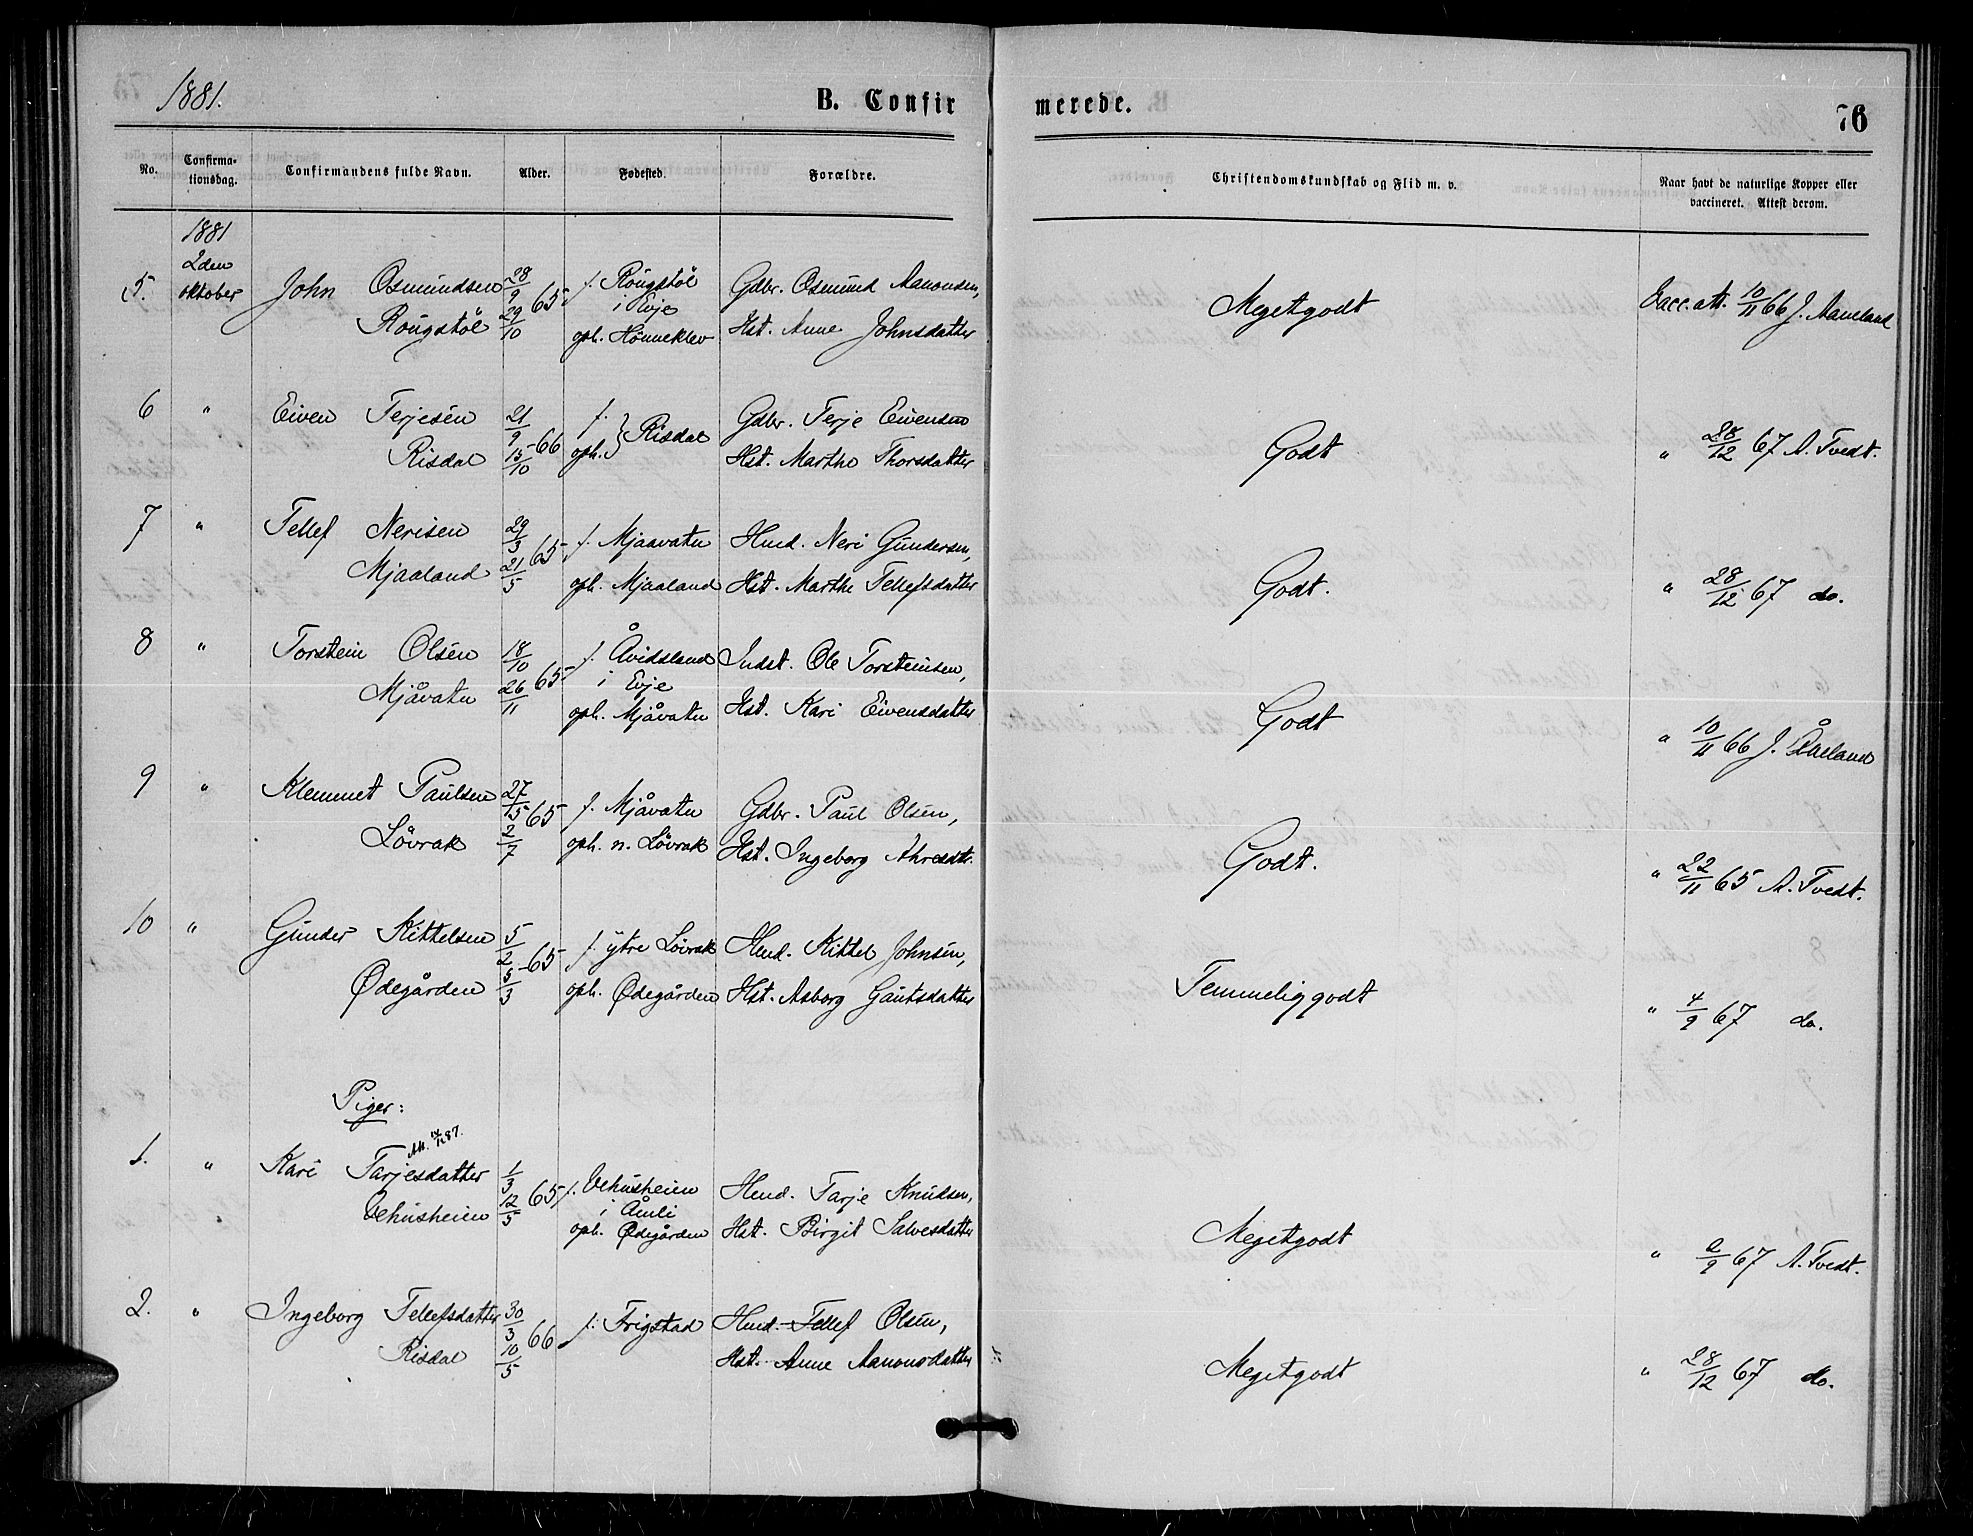 1881.
B. Confir
merede.
76
No.
Confirma-
tionsdag.
Confirmandens fulde Navn.
Alder.
Fødested.
Forældre.
Christendomskundskab og Flid m. v.
Naar havt de naturlige Kopper eller
vaccineret. Attest derom.
1881
2den
oktober
5. John Osmundsen 28/9 65 f. Rougstøl Gdbr. Osmund Aanonsen, Megetgodt Vacc. att. 10/11 66 J. Aaneland
Rougstøl 29/10 i Evje
oph. Hønneklev Hst. Anne Johnsdatter
6 " Eiven Terjesen 21/9 66 f. Gdbr. Terje Eivensen
Risdal 15/10 oph. } Risdal Hst. Marthe Thorsdatter Godt " 28/12 67 A. Tvedt.
7 " Tellef Nerisen 29/3 65 f. Mjaavatn Hmd. Neri Gundersen,
Mjaaland 21/5 oph. Mjaaland Hst. Marthe Tellefsdatter Godt. " 28/12 67 do.
8 " Torstein Olsen 18/10 65 f. Åvidsland Indst. Ole Torsteinsen,
i Evje
Mjåvatn 26/11 oph. Mjåvatn Hst. Kari Eivensdatter Godt " 10/11 66 J. Åneland
9 " Klemmet Paulsen 27/5 65 f. Mjåvatn Gdbr. Paul Olsen,
Løvrak 2/7 oph. n. Løvrak Hst. Ingeborg Ahresdtr. Godt. " 22/11 65 A. Tvedt.
10 " Gunder Kittelsen 5/2 65 f. ytre Løvrak Hmd. Kittel Johnsen,
Ødegården 5/3 oph. Ødegården Hst. Asborg Gautsdatter Temmeliggodt " 4/9 67 do.
Piger:
Att. 87.
1. " Kari Tarjesdatter 1/3 65 f. Vehusheien Hmd. Tarje Knudsen,
Vehusheien 12/5 i Åmli
oph. Ødegården Hst. Birgit Salvesdatter Megetgodt " 2/9 67 A. Tvedt.
2. " Ingeborg Tellefsdatter 30/3 66 f. Frigstad Hmd. Tellef Olsen,
Risdal 10/5 Hst. Anne Aanonsdatter Megetgodt " 28/12 67 do.